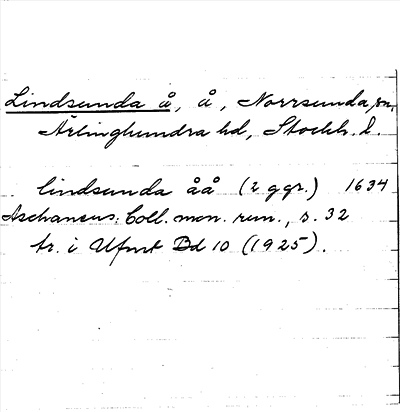 Lindsunda å, å, Norrsunda sn,
Ärlinghundra hd, Stockh. l.
lindsunda åå (2 ggr.) 1634
Aschaneus: Coll. mon. run., s. 32
tr. i Ufmt Bd 10 (1925).